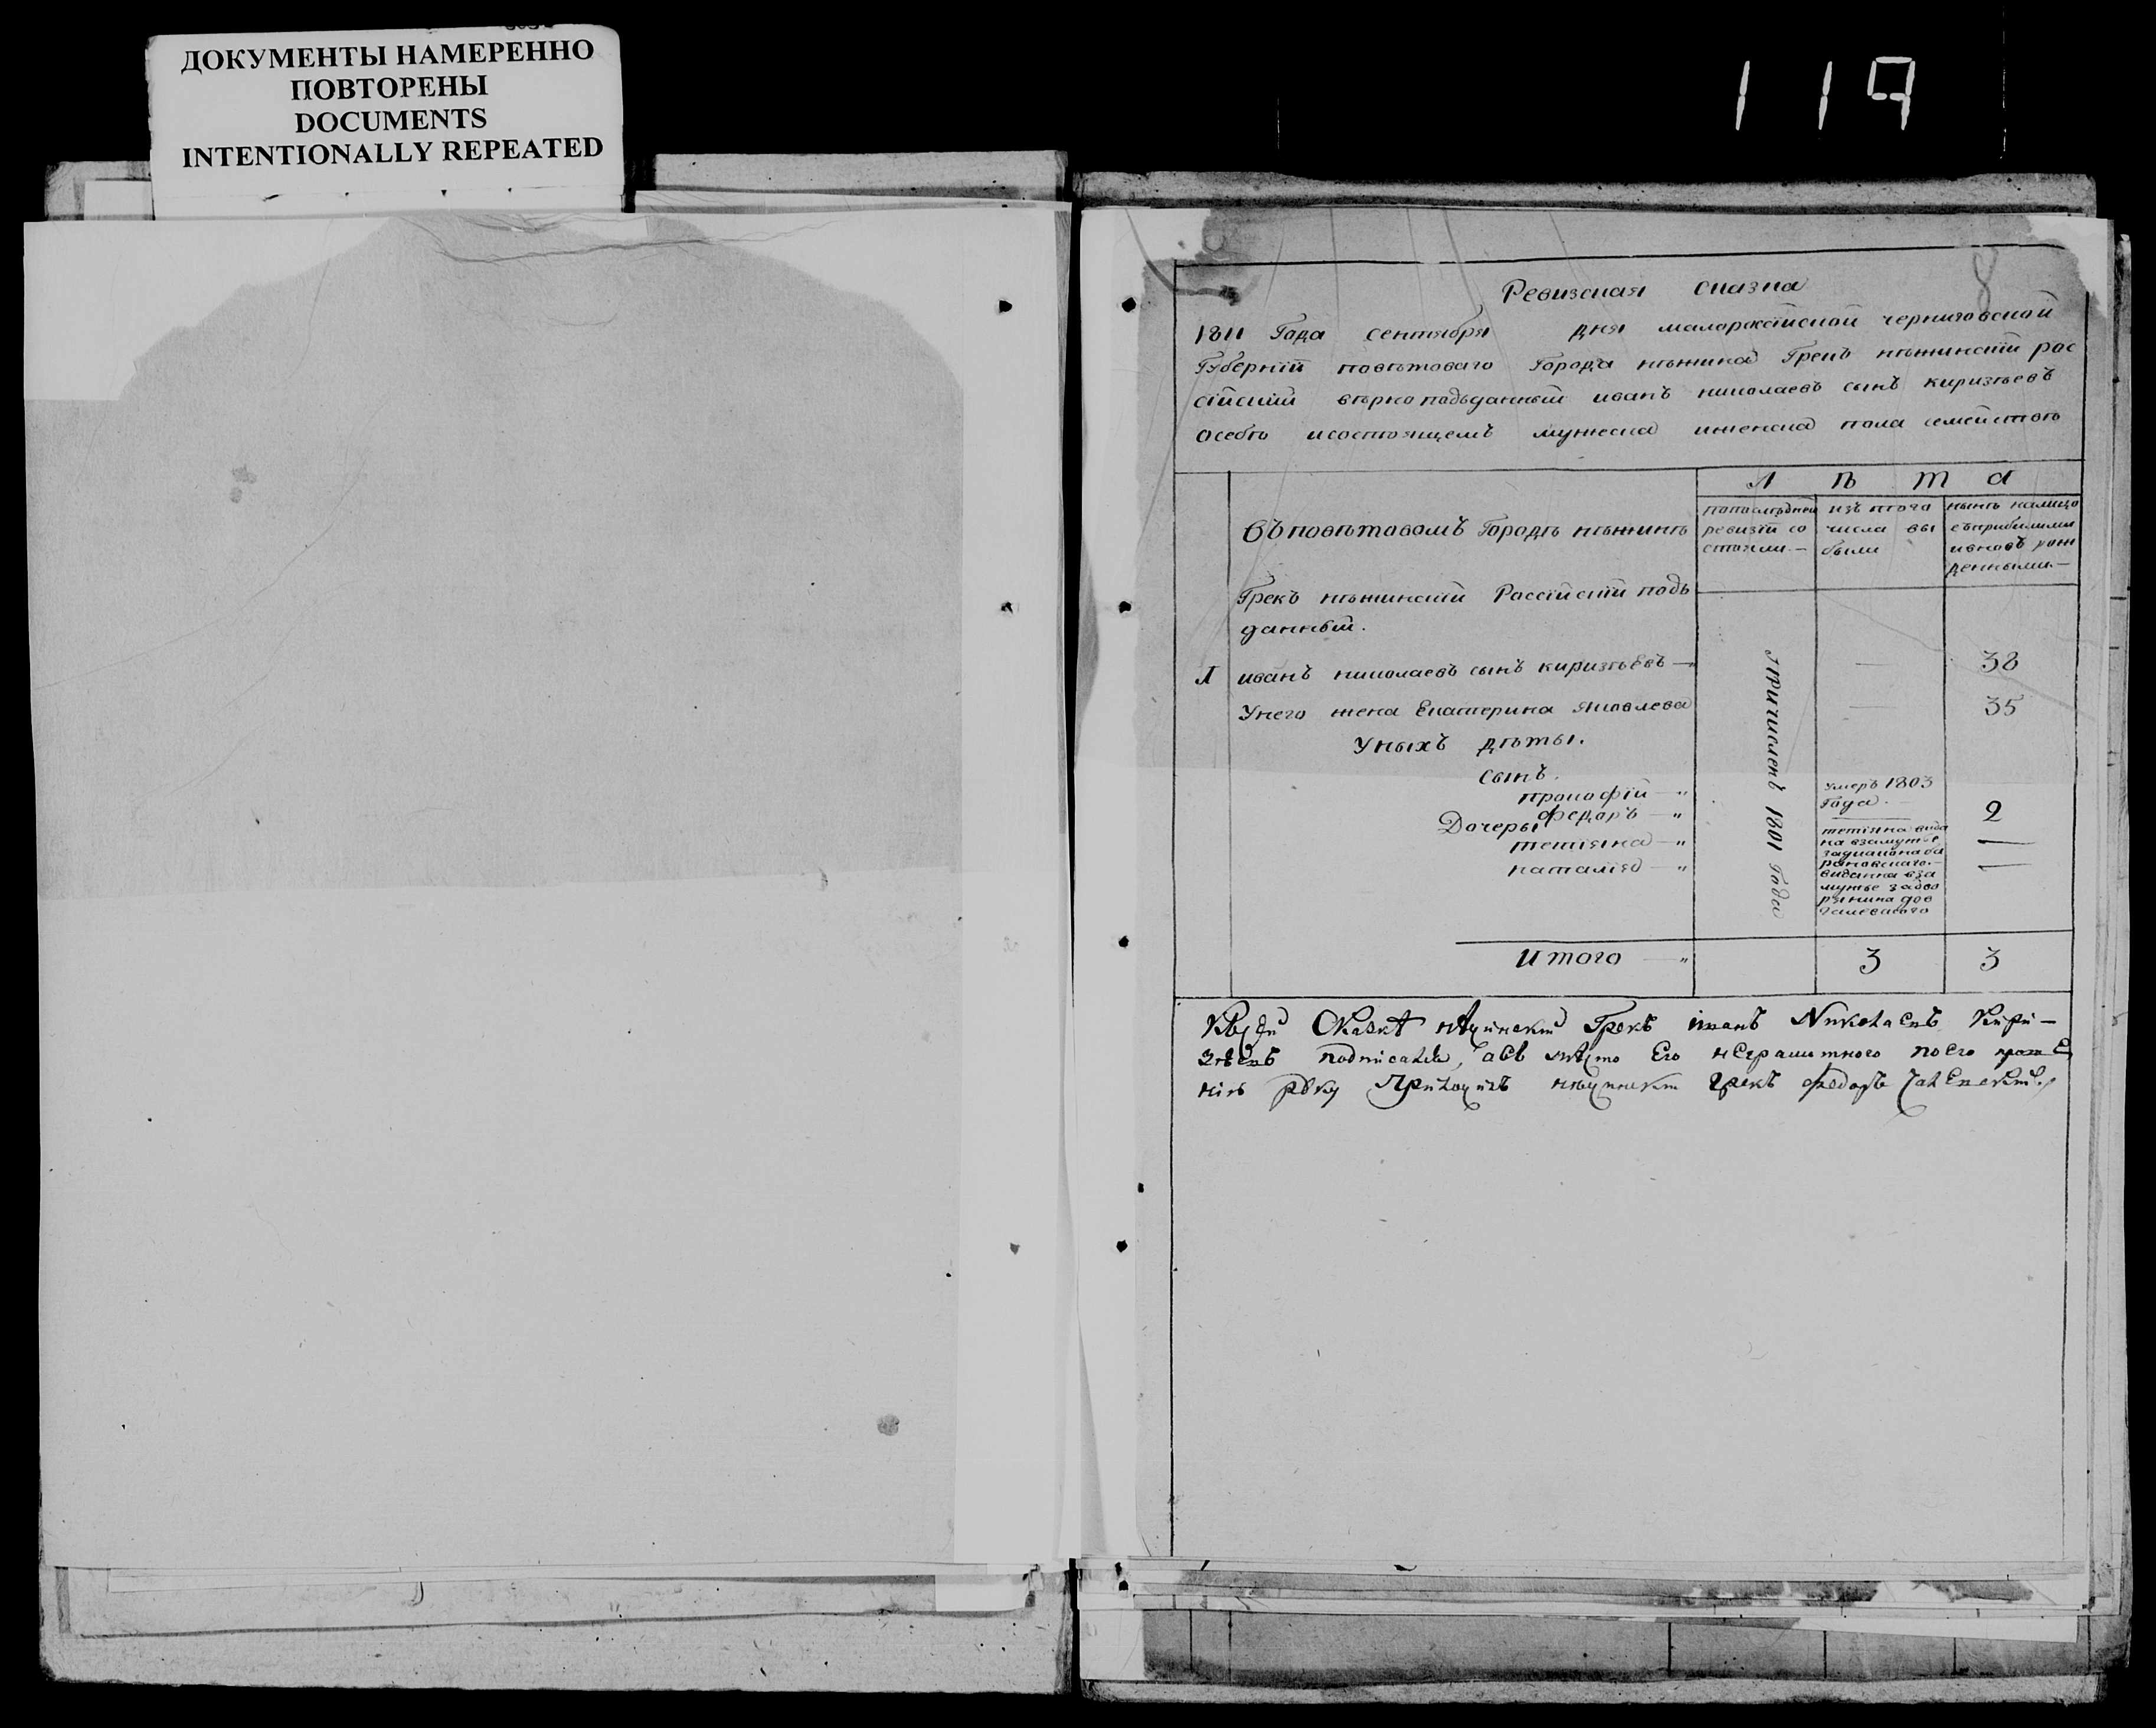 ДОКУМЕНТЫ НАМЕРЕННО
ПОВТОРЕНЫ
DOCUMENTS
INTENTIONALLY REPEATED
119
8
Ревизская сказка
1811 Года сентября дня малороссійской черниговской
Губерніи повѣтоваго Города нѣжина Грекъ нѣжинскій рос
сійскій вѣрно подъданный иванъ николаевъ сынъ киризѣевъ
особо исостоящемъ мужеска иженска пола семействѣ
Лѣта
Въ повѣтовомъ Городѣ нѣжинѣ
попослѣдней
ревизіи со
стояли.—
изъ того
числа вы
были
нынѣ налицо
съприбылими
ивновъ рож
денными.—
Грекъ нѣжинскій Россійскій подъ
данный.
1 иванъ николаевъ сынъ киризѣевъ — 38
Унего жена Екатерина Яковлева 35
Уныхъ дѣты.
сынъ.
прокофій — "
умеръ 1803
Года.
федоръ — " 2
Дочеры
тетіяна — "
наталія — "
причисленъ 1801 Года
тетіяна выда
на взамужье
рановскаго.—
виданна вза
мужье задво
рянина дов
Итого — " 3 3
Сказкѣ нѣжинскій Грекъ іванъ Николаевъ Кири—
зѣевъ подписался, авъ мѣсто Его неграмитного поего проше
нію руку Приложилъ нѣжинскій грекъ федоръ